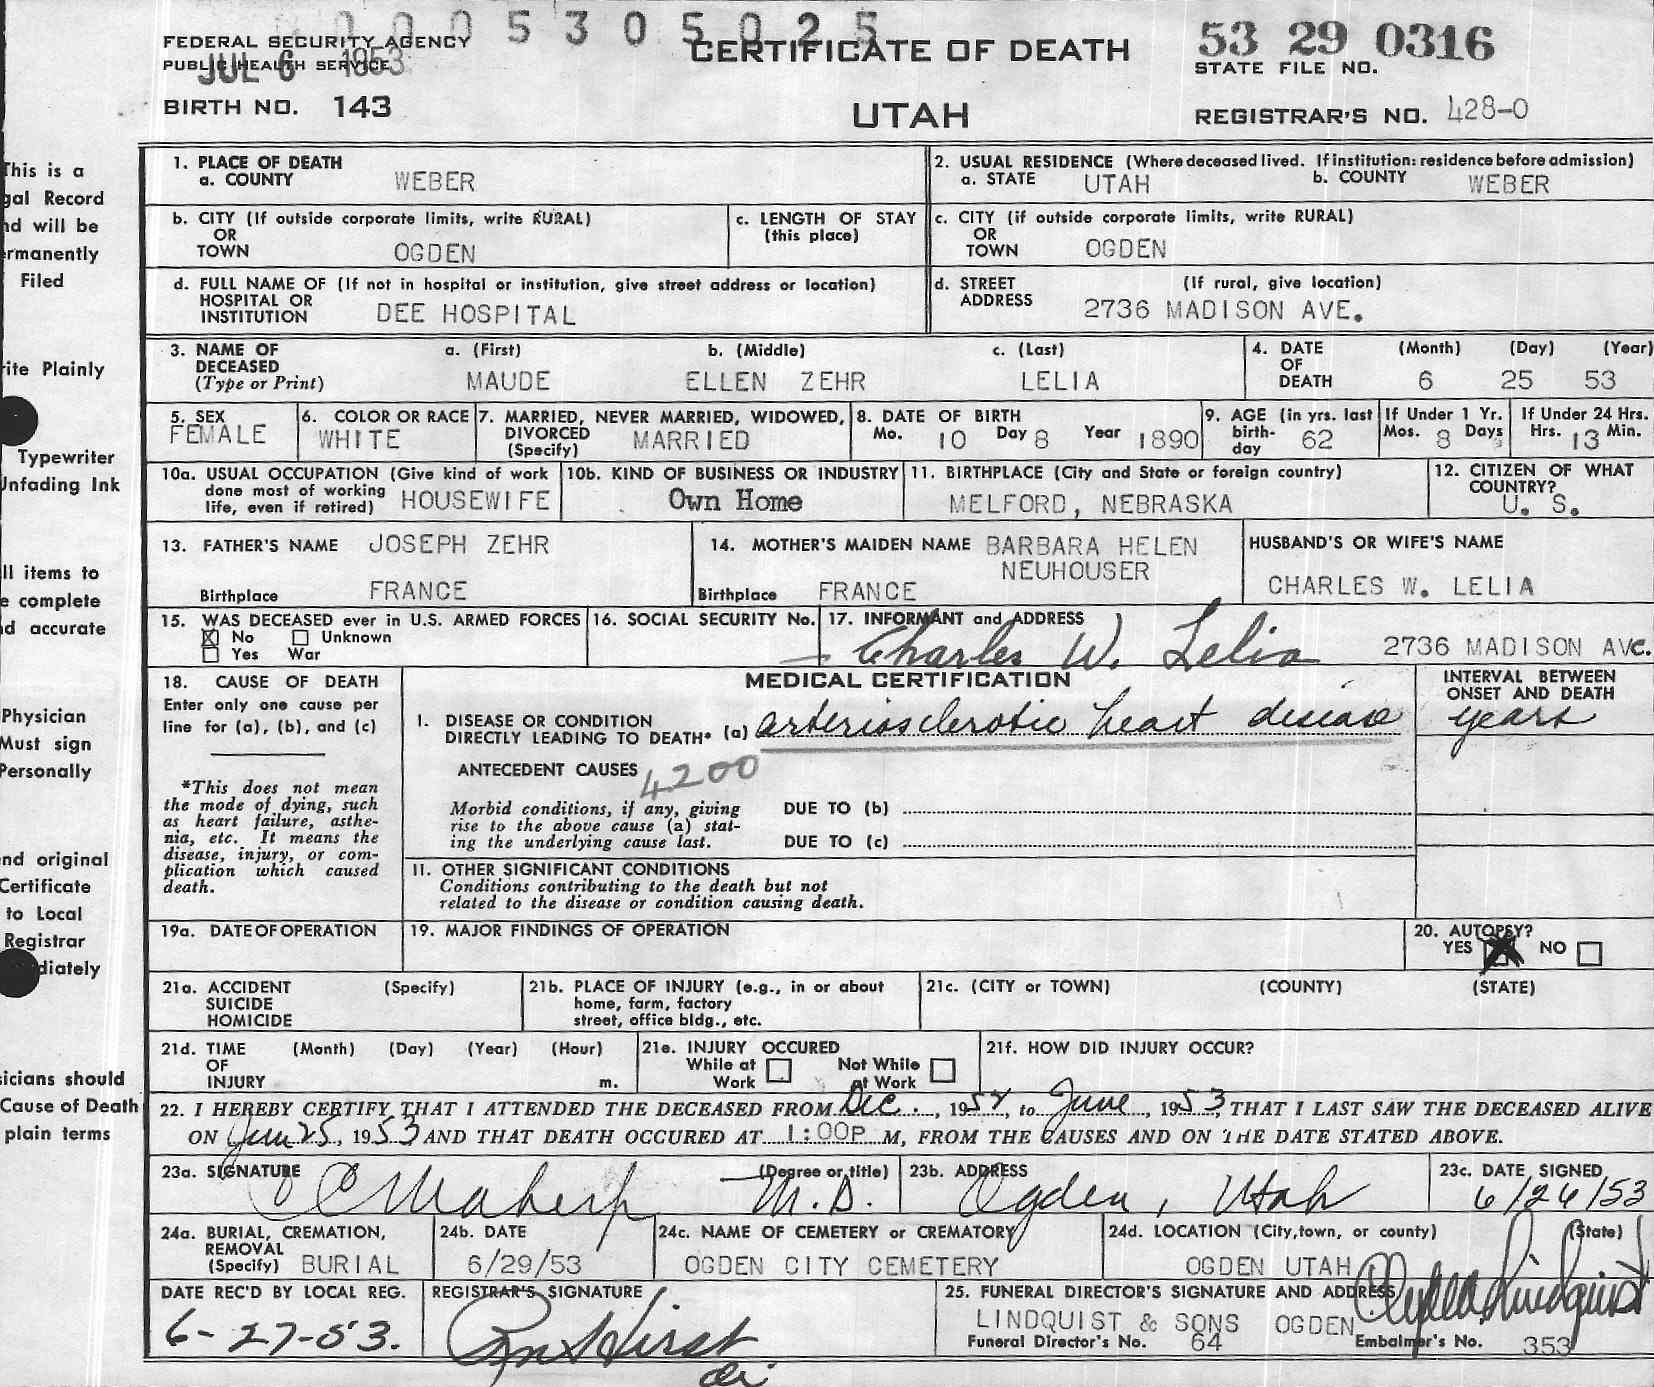 0005305025
FEDERAL SECURITY AGENCY
PUBLIC HEALTH SERVICE
JUL 6 1953
CERTIFICATE OF DEATH
53 29 0316
STATE FILE NO.
BIRTH NO. 143
UTAH
REGISTRAR'S NO. 428-0
This is a
gal Record
nd will be
ermanently
Filed
rite Plainly
Typewriter
Unfading Ink
ll items to
e complete
nd accurate
Physician
Must sign
Personally
nd original
Certificate
to Local
Registrar
diately
sicians should
Cause of Death
plain terms
1. PLACE OF DEATH
a. COUNTY WEBER
2. USUAL RESIDENCE (Where deceased lived. If institution: residence before admission)
a. STATE UTAH b. COUNTY WEBER
b. CITY (If outside corporate limits, write RURAL)
OR
TOWN OGDEN
c. LENGTH OF STAY
(this place)
c. CITY (if outside corporate limits, write RURAL)
OR
TOWN OGDEN
d. FULL NAME OF (If not in hospital or institution, give street address or location)
HOSPITAL OR
INSTITUTION DEE HOSPITAL
d. STREET (If rural, give location)
ADDRESS 2736 MADISON AVE.
3. NAME OF DECEASED
(Type or Print)
a. (First) b. (Middle) c. (Last)
MAUDE ELLEN ZEHR LELIA
4. DATE OF DEATH (Month) (Day) (Year)
6 25 53
5. SEX
FEMALE
6. COLOR OR RACE
WHITE
7. MARRIED, NEVER MARRIED, WIDOWED,
DIVORCED
(Specify) MARRIED
8. DATE OF BIRTH
Mo. 10 Day 8 Year 1890
9. AGE (in yrs. last
birth-
day 62
If Under 1 Yr.
Mos. 8 Days
If Under 24 Hrs.
Hrs. 13 Min.
10a. USUAL OCCUPATION (Give kind of work
done most of working
life, even if retired) HOUSEWIFE
10b. KIND OF BUSINESS OR INDUSTRY
Own Home
11. BIRTHPLACE (City and State or foreign country)
MELFORD, NEBRASKA
12. CITIZEN OF WHAT
COUNTRY?
U. S.
13. FATHER'S NAME JOSEPH ZEHR
Birthplace FRANCE
14. MOTHER'S MAIDEN NAME BARBARA HELEN
NEUHOUSER
Birthplace FRANCE
HUSBAND'S OR WIFE'S NAME
CHARLES W. LELIA
15. WAS DECEASED ever in U.S. ARMED FORCES
X No Unknown
Yes War
16. SOCIAL SECURITY No.
17. INFORMANT and ADDRESS
Charles W. Lelia 2736 MADISON AVE.
18. CAUSE OF DEATH
Enter only one cause per
line for (a), (b), and (c)
*This does not mean
the mode of dying, such
as heart failure, asthe-
nia, etc. It means the
disease, injury, or com-
plication which caused
death.
MEDICAL CERTIFICATION
INTERVAL BETWEEN
ONSET AND DEATH
I. DISEASE OR CONDITION
DIRECTLY LEADING TO DEATH* (a) arteriosclerotic heart disease years
ANTECEDENT CAUSES 4200
Morbid conditions, if any, giving
rise to the above cause (a) stat-
ing the underlying cause last.
DUE TO (b)
DUE TO (c)
II. OTHER SIGNIFICANT CONDITIONS
Conditions contributing to the death but not
related to the disease or condition causing death.
19a. DATE OF OPERATION
19. MAJOR FINDINGS OF OPERATION
20. AUTOPSY?
YES X NO
21a. ACCIDENT (Specify)
SUICIDE
HOMICIDE
21b. PLACE OF INJURY (e.g., in or about
home, farm, factory
street, office bldg., etc.
21c. (CITY or TOWN) (COUNTY) (STATE)
21d. TIME (Month) (Day) (Year) (Hour)
OF
INJURY m.
21e. INJURY OCCURED
While at Work Not While at Work
21f. HOW DID INJURY OCCUR?
22. I HEREBY CERTIFY THAT I ATTENDED THE DECEASED FROM Dec., 19 to June, 1953, THAT I LAST SAW THE DECEASED ALIVE
ON Jun 25, 1953 AND THAT DEATH OCCURED AT 1:00P M, FROM THE CAUSES AND ON THE DATE STATED ABOVE.
23a. SIGNATURE (Degree or title)
M.D.
23b. ADDRESS
Ogden, Utah
23c. DATE SIGNED
6/26/53
24a. BURIAL, CREMATION,
REMOVAL
(Specify) BURIAL
24b. DATE
6/29/53
24c. NAME OF CEMETERY or CREMATORY
OGDEN CITY CEMETERY
24d. LOCATION (City, town, or county) (State)
OGDEN UTAH
DATE REC'D BY LOCAL REG.
6-27-53.
REGISTRAR'S SIGNATURE
25. FUNERAL DIRECTOR'S SIGNATURE AND ADDRESS
LINDQUIST & SONS OGDEN
Funeral Director's No. 64 Embalmer's No. 353